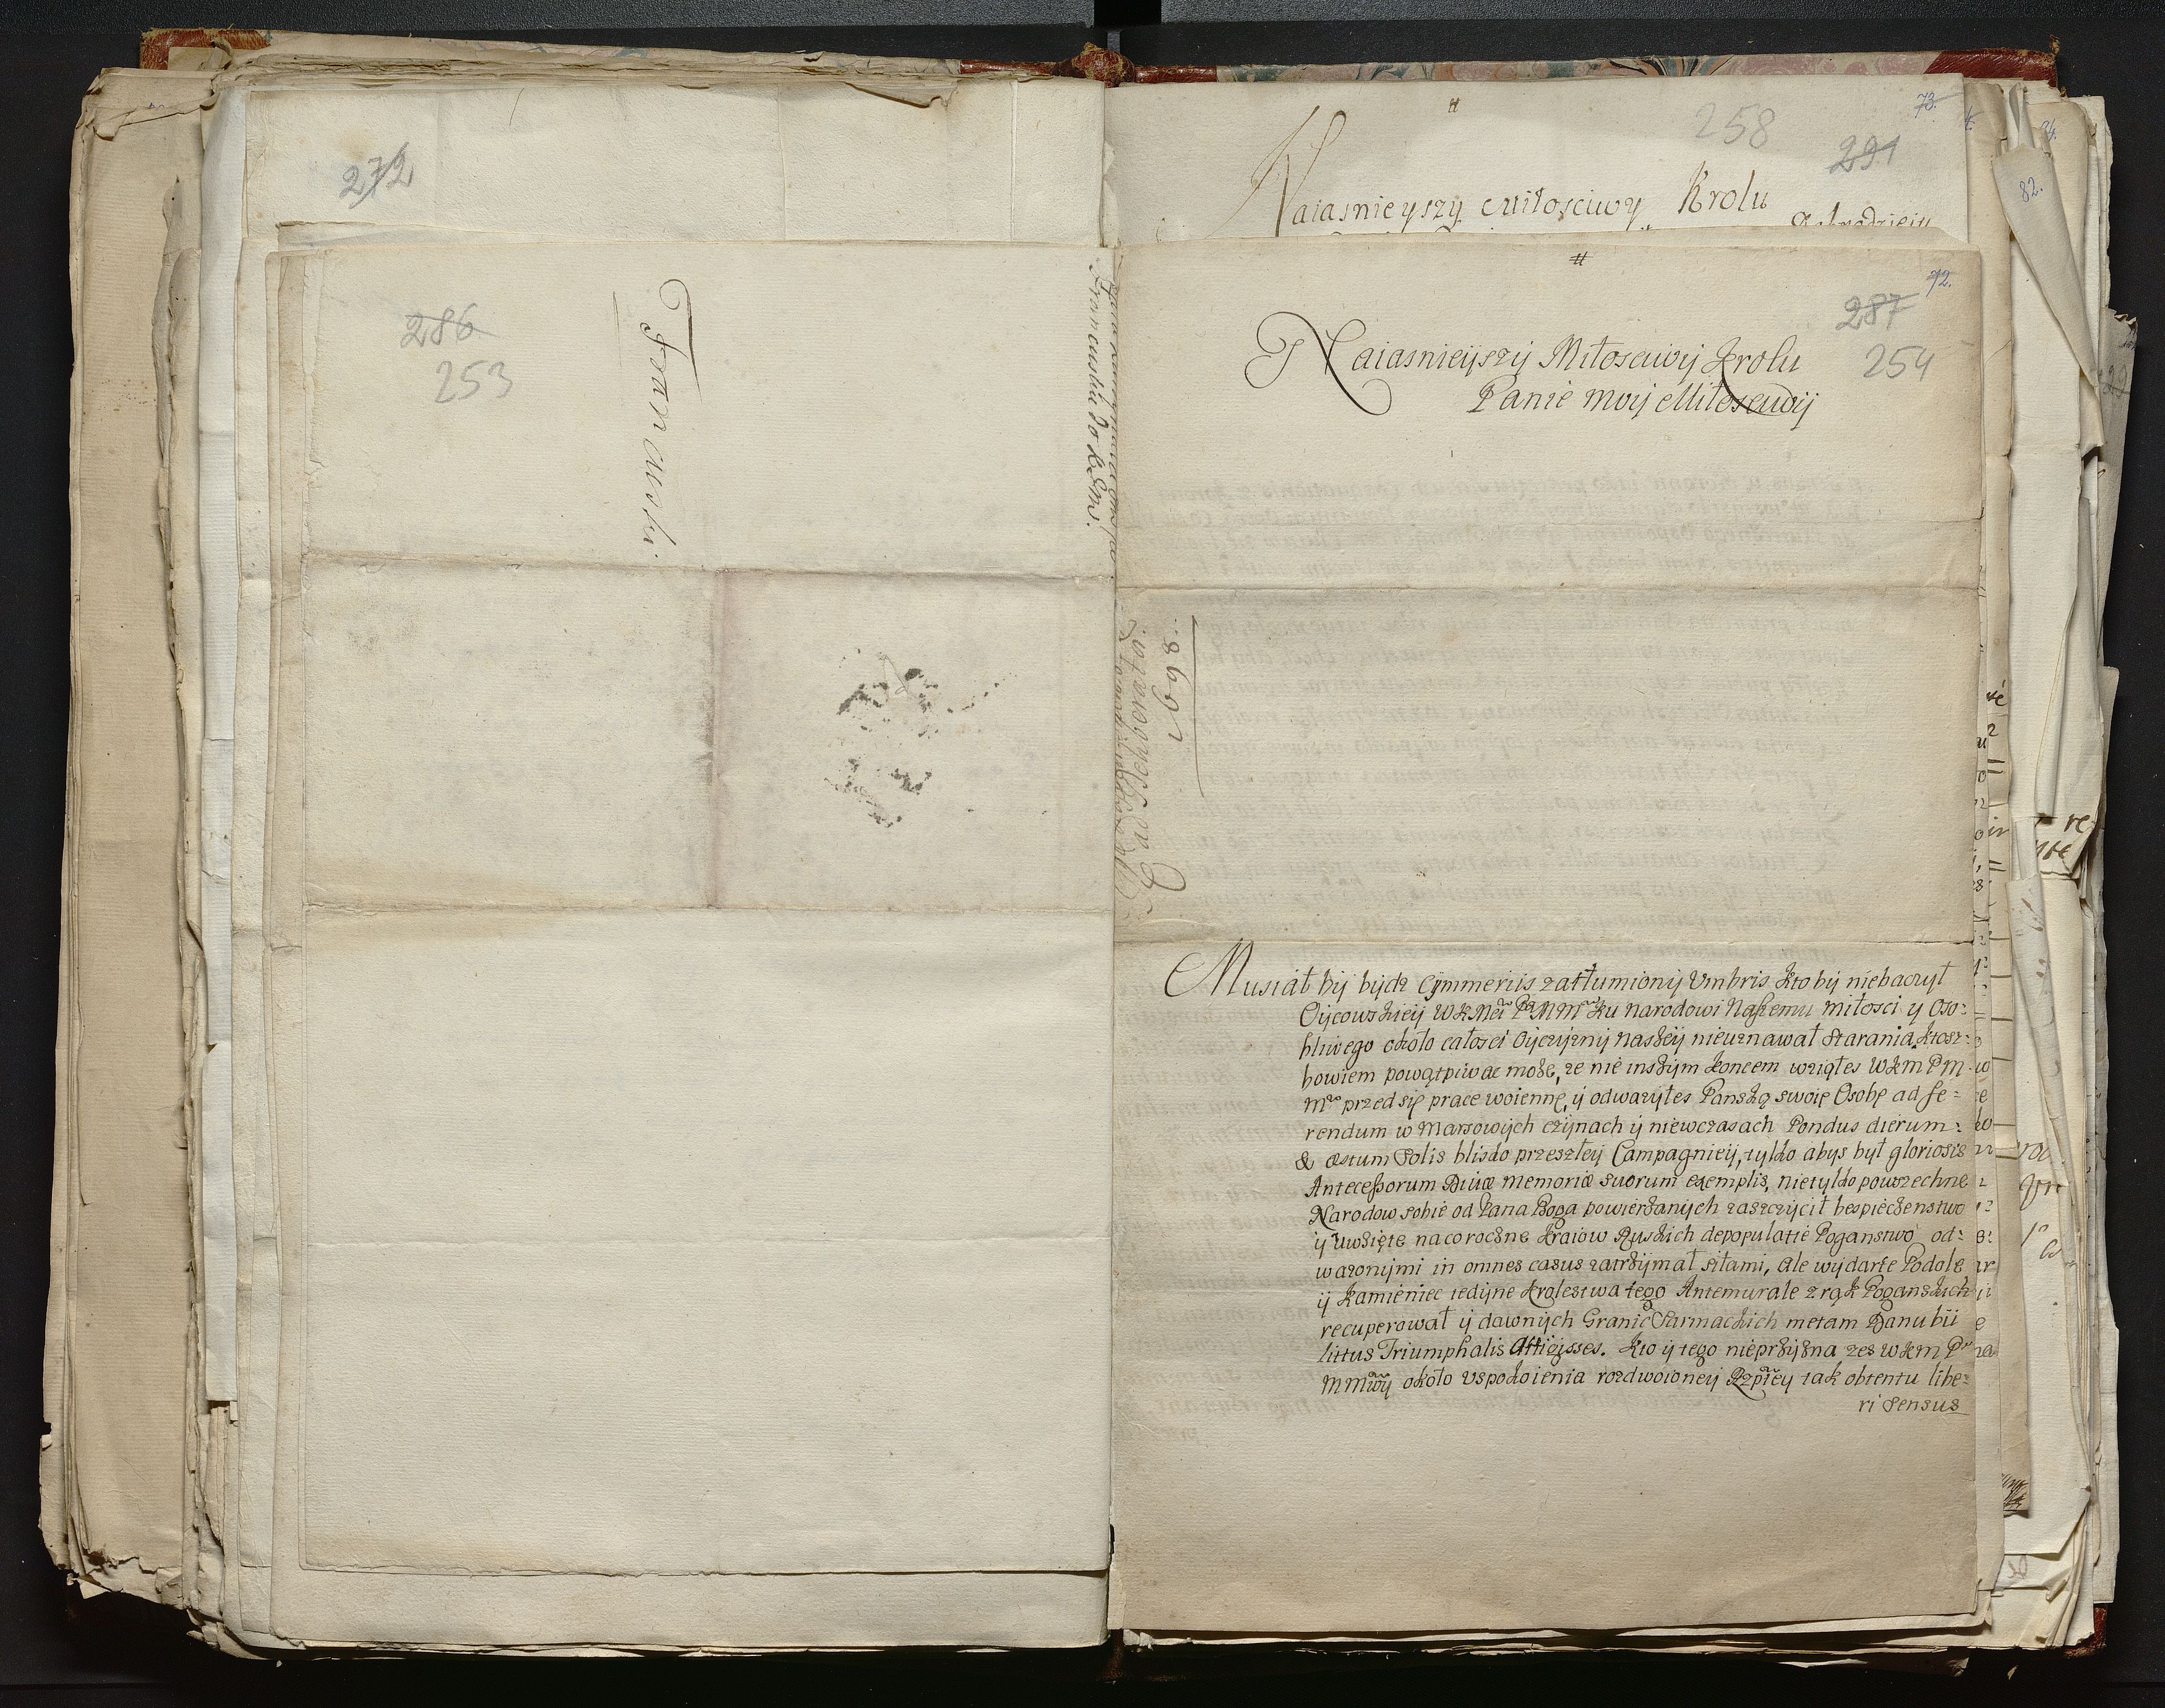 272
286
253
Francuski.
Francuskie do K. Em.
1698.
258
73.
291
Naiasnieyszy Miłosciwy Krolu
#
72.
287
254
Naiasnieijszij Miłosciwij Krolu
Panie moij Miłosciwij
Musiał bij bijdz Cijmmeriis zatłumionij Vmbris, kto bij niebaczył
Oijcowskieij WKMci PaMMo ku Narodowi Naszemu miłosci y Oso-
bliwego około całosci Oijczijznij naszeij nieuznawał starania, ktosz-
bowiem powątpiwac może, ze nie inszijm koncem wziąłes WKM PM
Mo przed się prace woiennę, ij odwazyłes Panską swoię Osobę ad fe-
rendum w Marsowijch czijnach ij niewczasach Pondus dierum
& æstum Solis blisko przeszłeij Campagnieij, tylko abys był gloriosis
Antecessorum Divæ memoriæ suorum exemplis, nietylko powszechne
Narodow sobie od Pana Boga powierzanijch zaszczijcił bespieczenstwo
ij uwzięte nacoroczne kraiow Ruskich depopulatie Poganstwo od-
wazonijmi in omnes casus zatrzijmał siłami, ale wijdarte Podole
ij Kamieniec iedijne krolestwa tego Antemurale z rąk Poganskich
recuperował ij dawnijch Granic Sarmackich metam Danubii
littus Triumphalis Attigisses. Kto ij tego nieprzijzna zes WKM P
MMwij około uspokoienia rozdwoioneij Rzpteij tak obtentu libe-
ri sensus